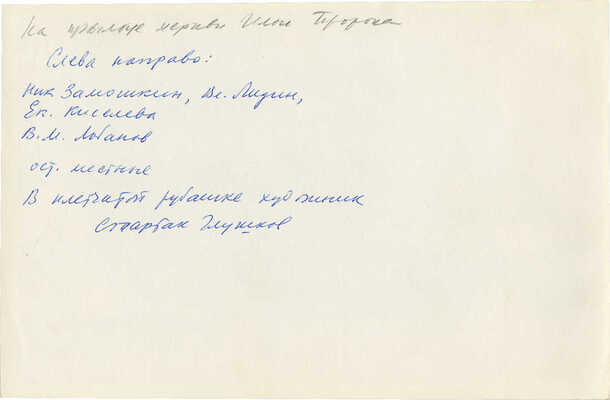 На крыльце церкви Ильи Пророка
Слева направо:
Ник Замошкин, Вл. Лидин,
Ек. Киселева
В.М. Лобанов
ост. местные
В клетчатой рубашке художник
Спартак Глушков